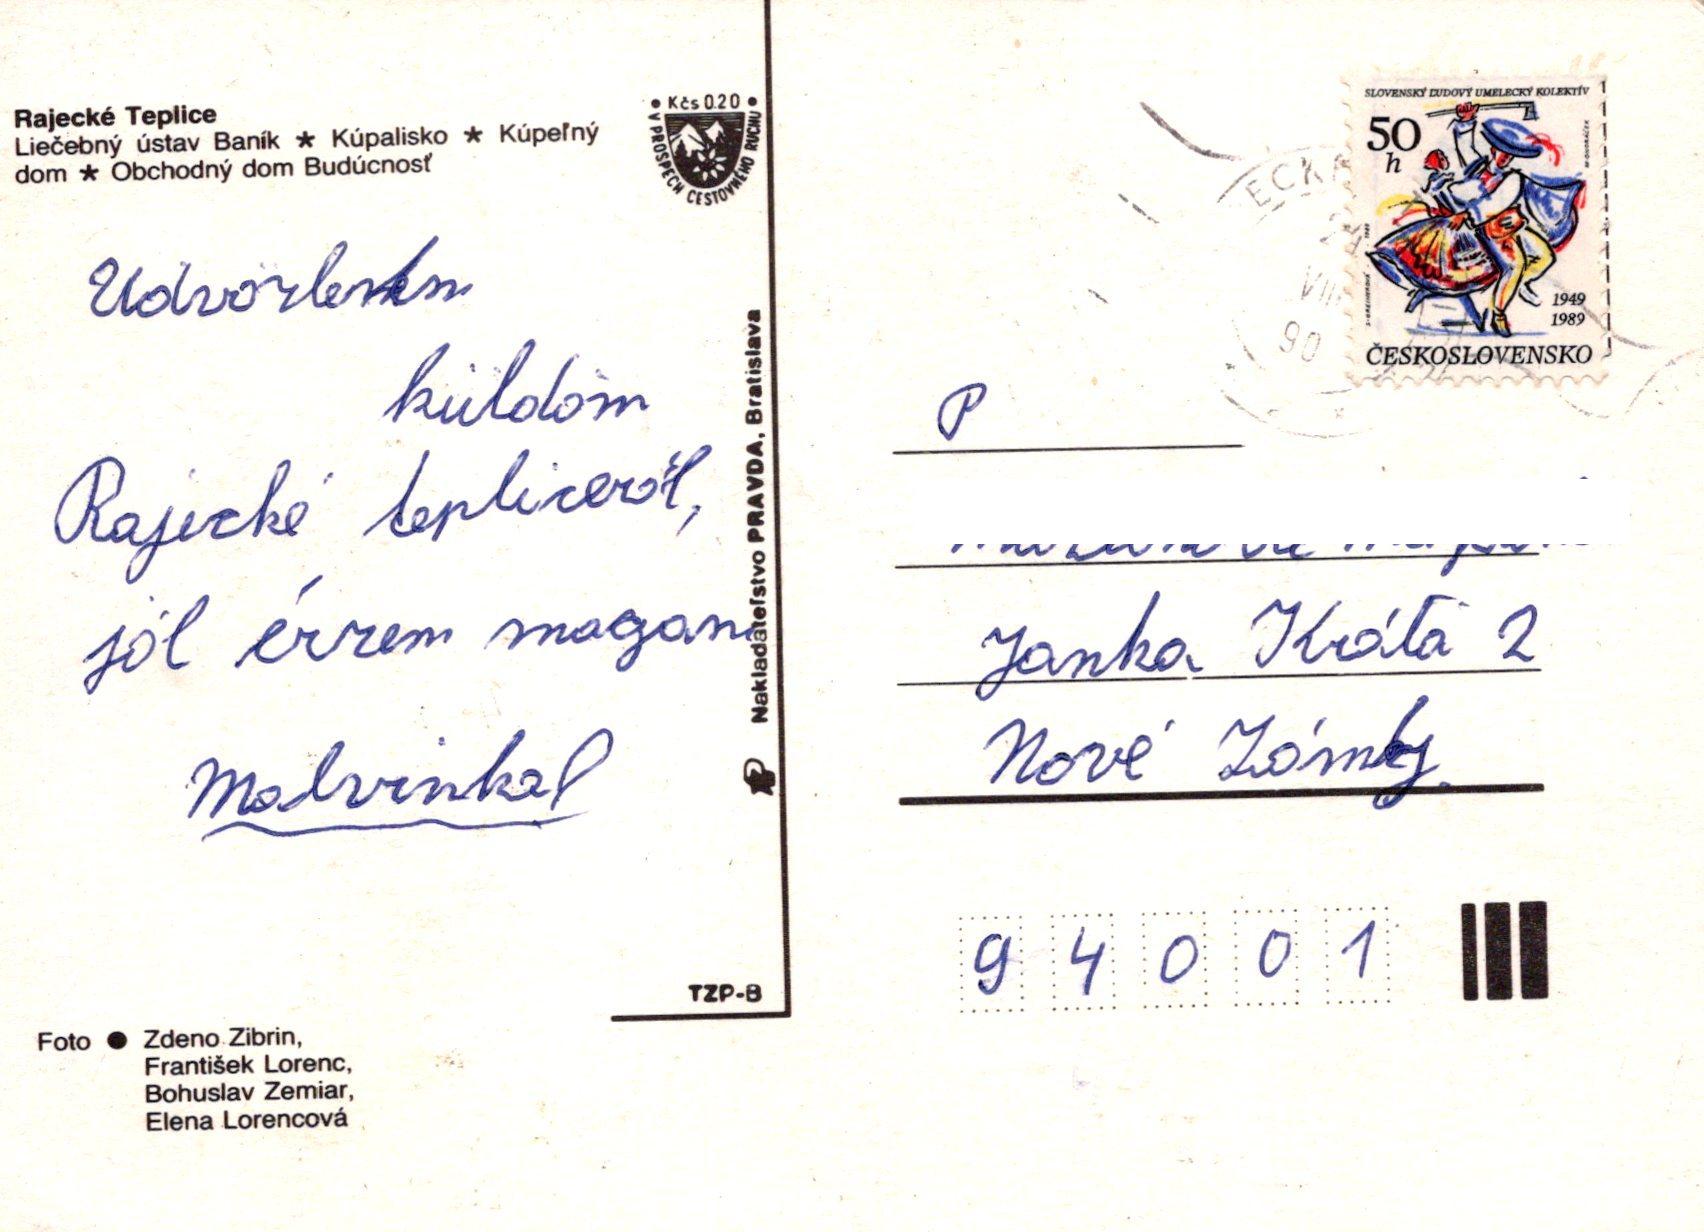 Rajecké Teplice
Liečebný ústav Baník ★ Kúpalisko ★ Kúpeľný
dom ★ Obchodný dom Budúcnosť
• Kčs 0.20 •
V PROSPECH CESTOVNÉHO RUCHU
küldöm
Rajecké tepliceröl,
jól érzem magam
Malvinka
Nakladateľstvo PRAVDA, Bratislava
TZP-B
Foto ● Zdeno Zibrin,
František Lorenc,
Bohuslav Zemiar,
Elena Lorencová
SLOVENSKÝ ĽUDOVÝ UMELECKÝ KOLEKTÍV
50
h
1949
1989
ČESKOSLOVENSKO
VIII
90
P
Janka Kráľa 2
Nové Zámky.
94001